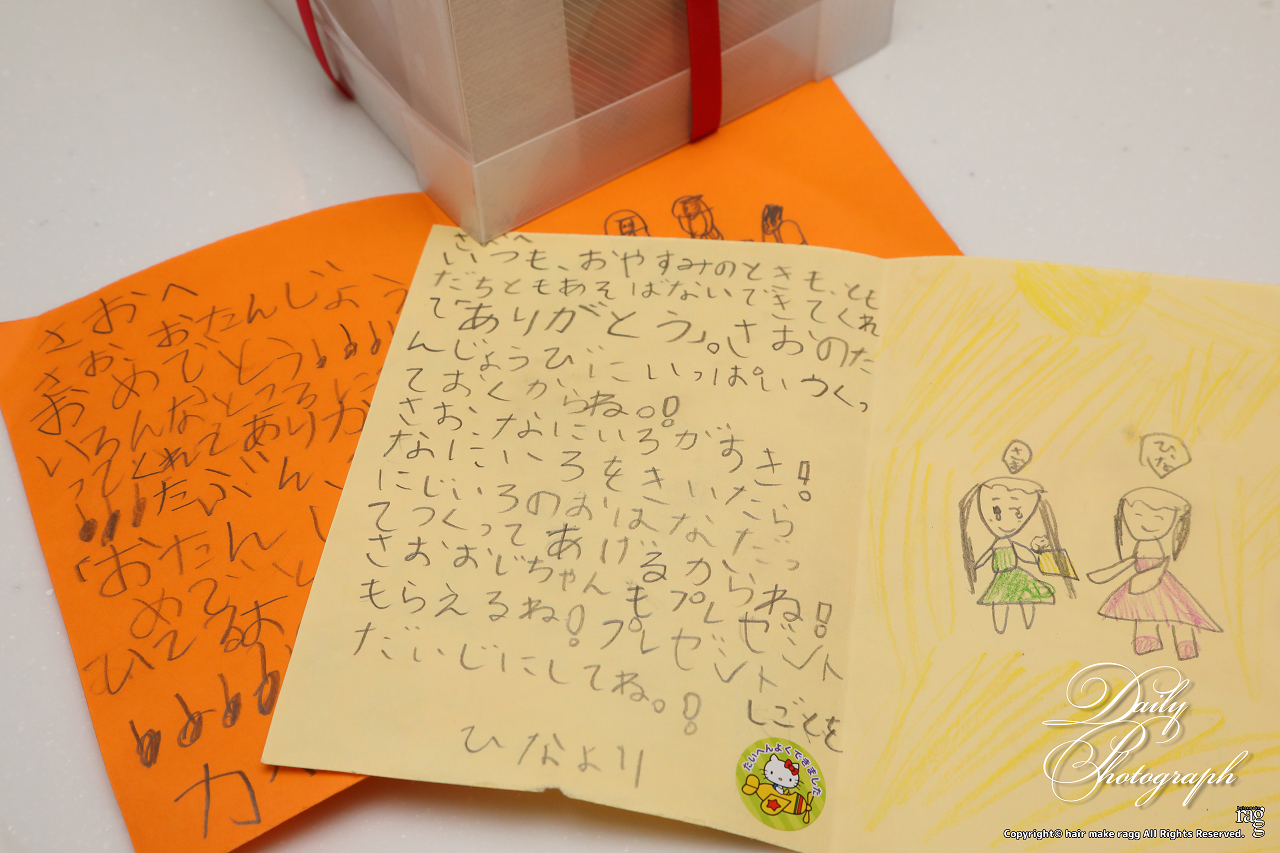 さおへ
さおおたんじょう
おめでとう!!!
いろんなところに
ってくれてありが
!!!たぶん、
「おたん
めでと
!!!!
カ
さおへ
いつも、おやすみのときも、とも
だちともあそばないできてくれ
て「ありがとう」。さおのた
んじょうびにいっぱいつくっ
ておくからね。!!
さおなにいろがすき!
なにいろをきいたら
にじいろのおはなだっ
てつくってあげるからね!
さおおじちゃんもプレゼント
もらえるね!プレゼント
だいじにしてね。!
しごとを
ひなより
たいへんよくできました
さお
ひな
Daily
Photograph
ragg
Copyright© hair make ragg All Rights Reserved.